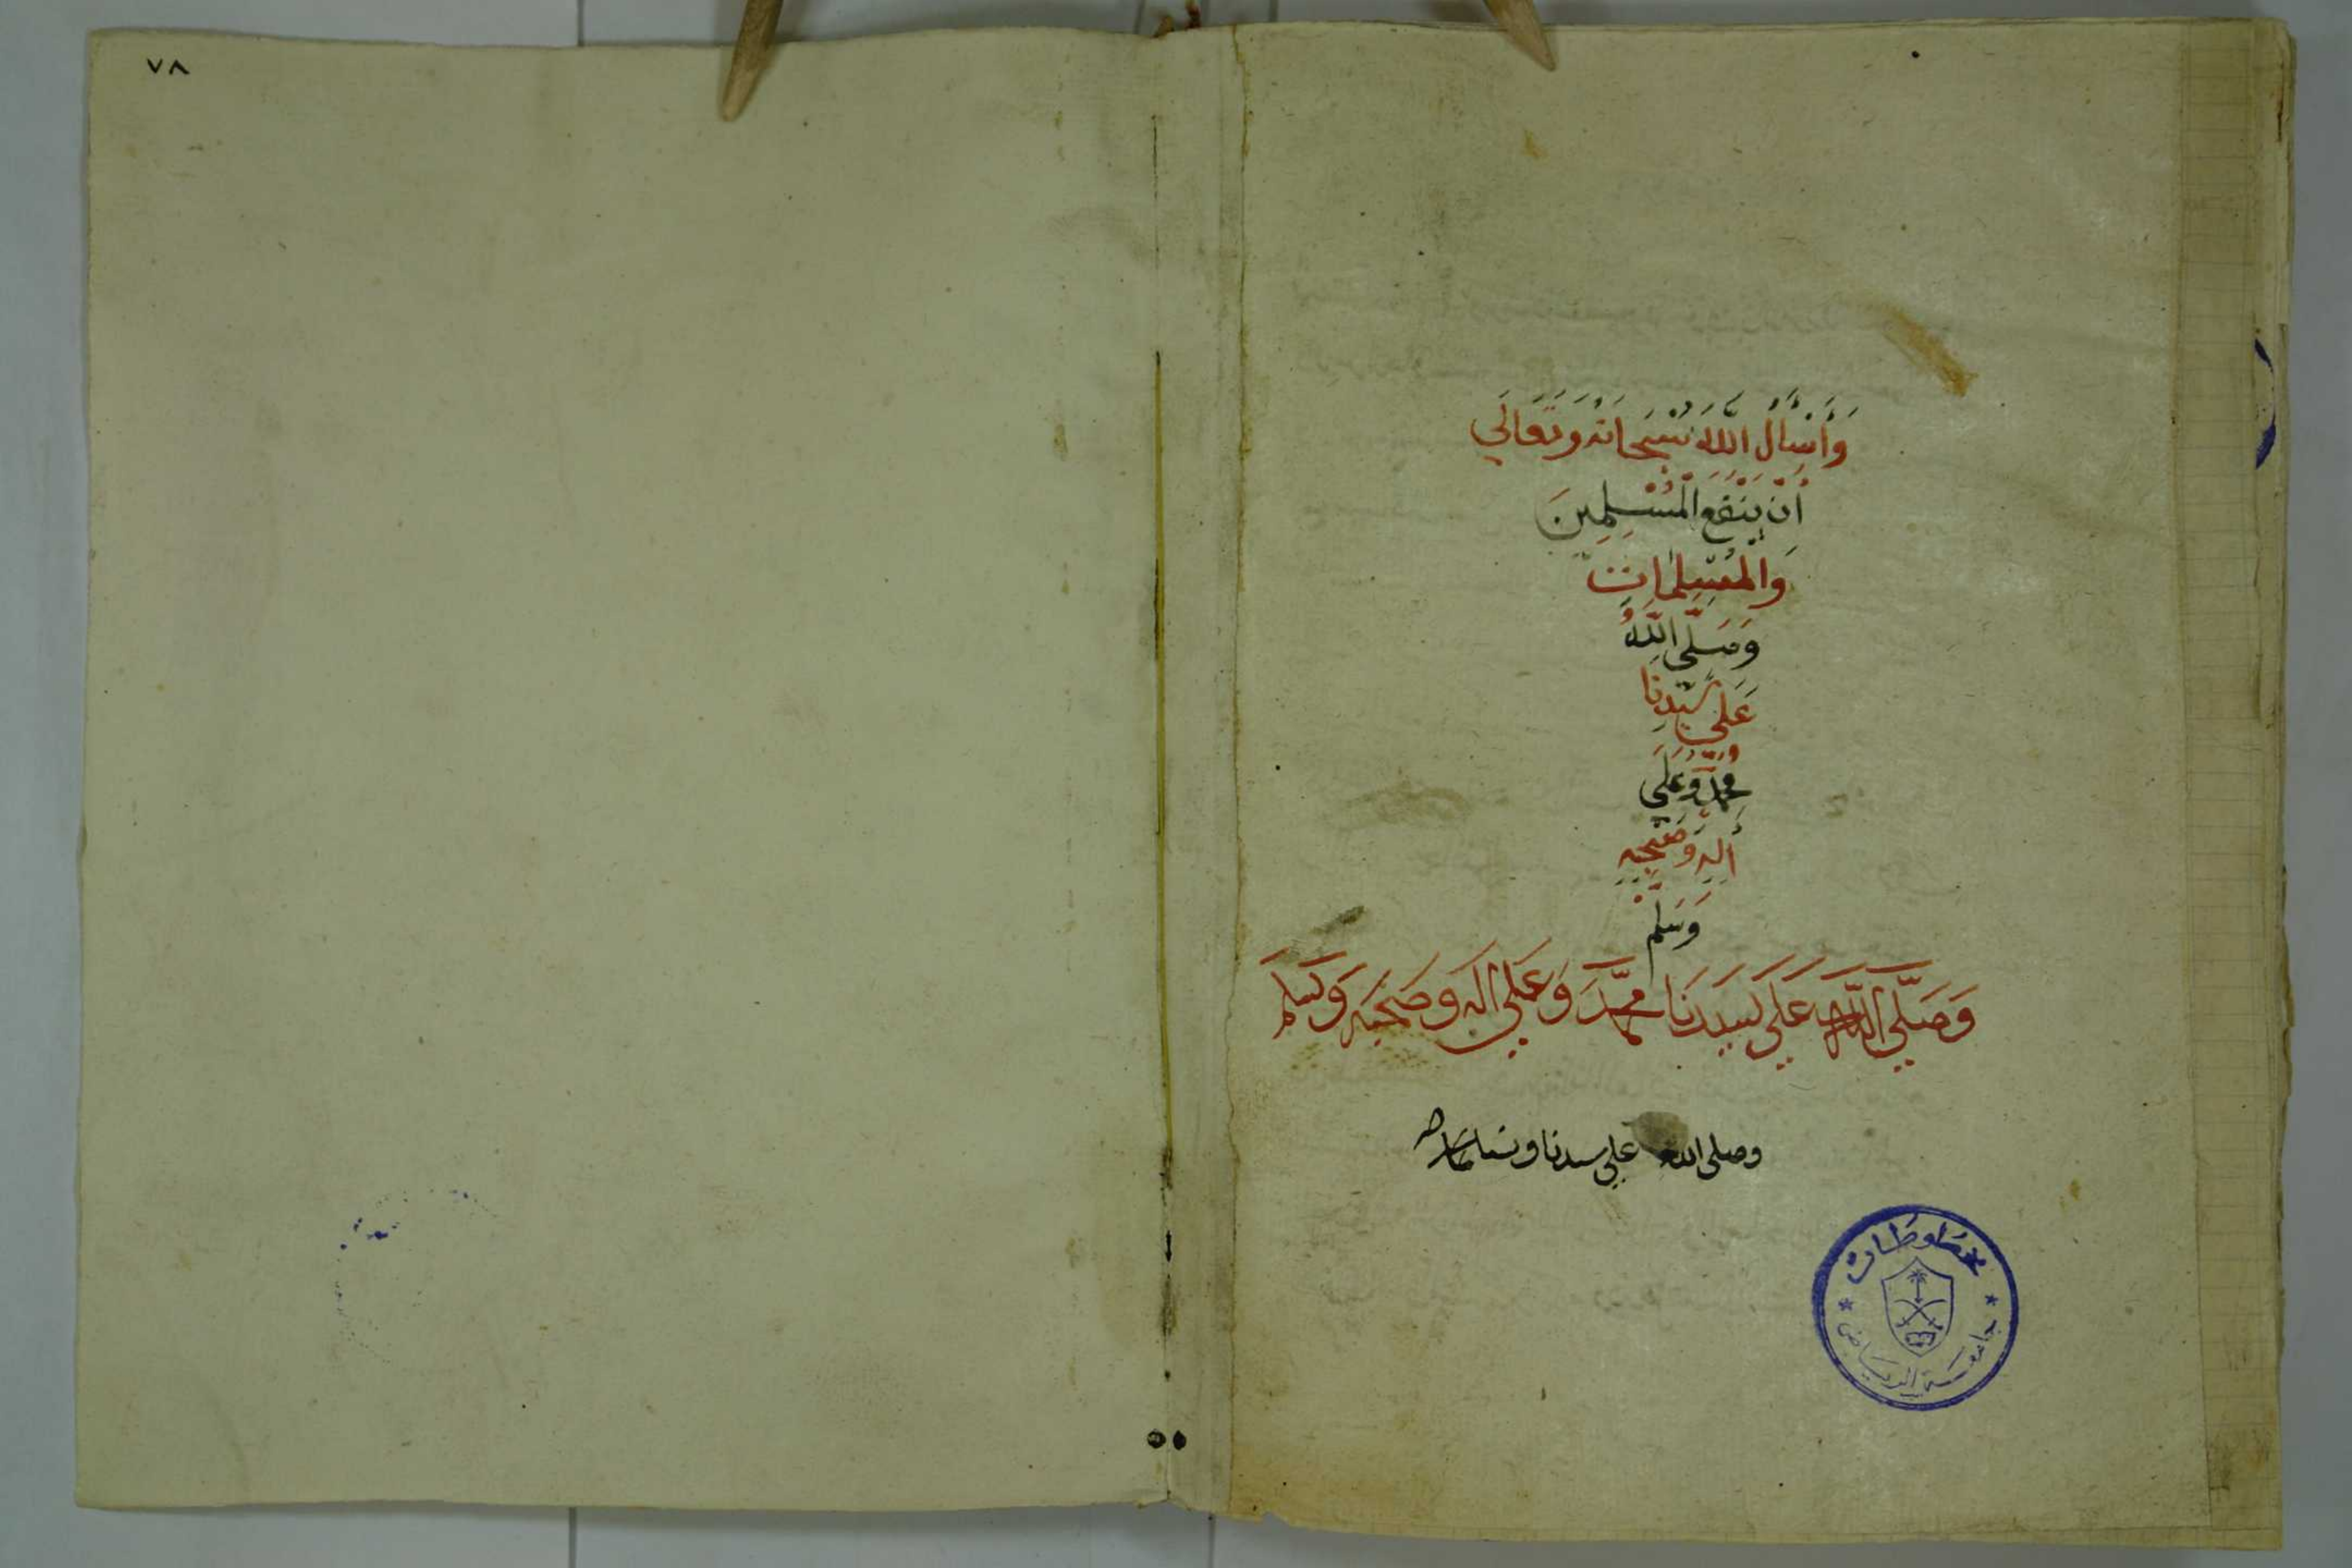 وَأَسْأَلُ اللَّهَ سُبْحَانَهُ وَتَعَالَي
أَنْ يَنْفَعَ الْمُسْلِمِينَ
وَالْمُسْلِمَاتِ
وَصَلَّي اللَّهُ
عَلَي سَيِّدِنَا
مُحَمَّدٍ وَعَلَي
أَلِهِ وَصَحْبِهِ
وَسَلَّمَ
وَصَلَّي اللَّه عَلَي سَيدنَا محمَّد وَعَلي اله وَصَحبَه وَسَلم
وصلى الله علي سيدنا
مخطوطات
جامعة الرياض
٧٨